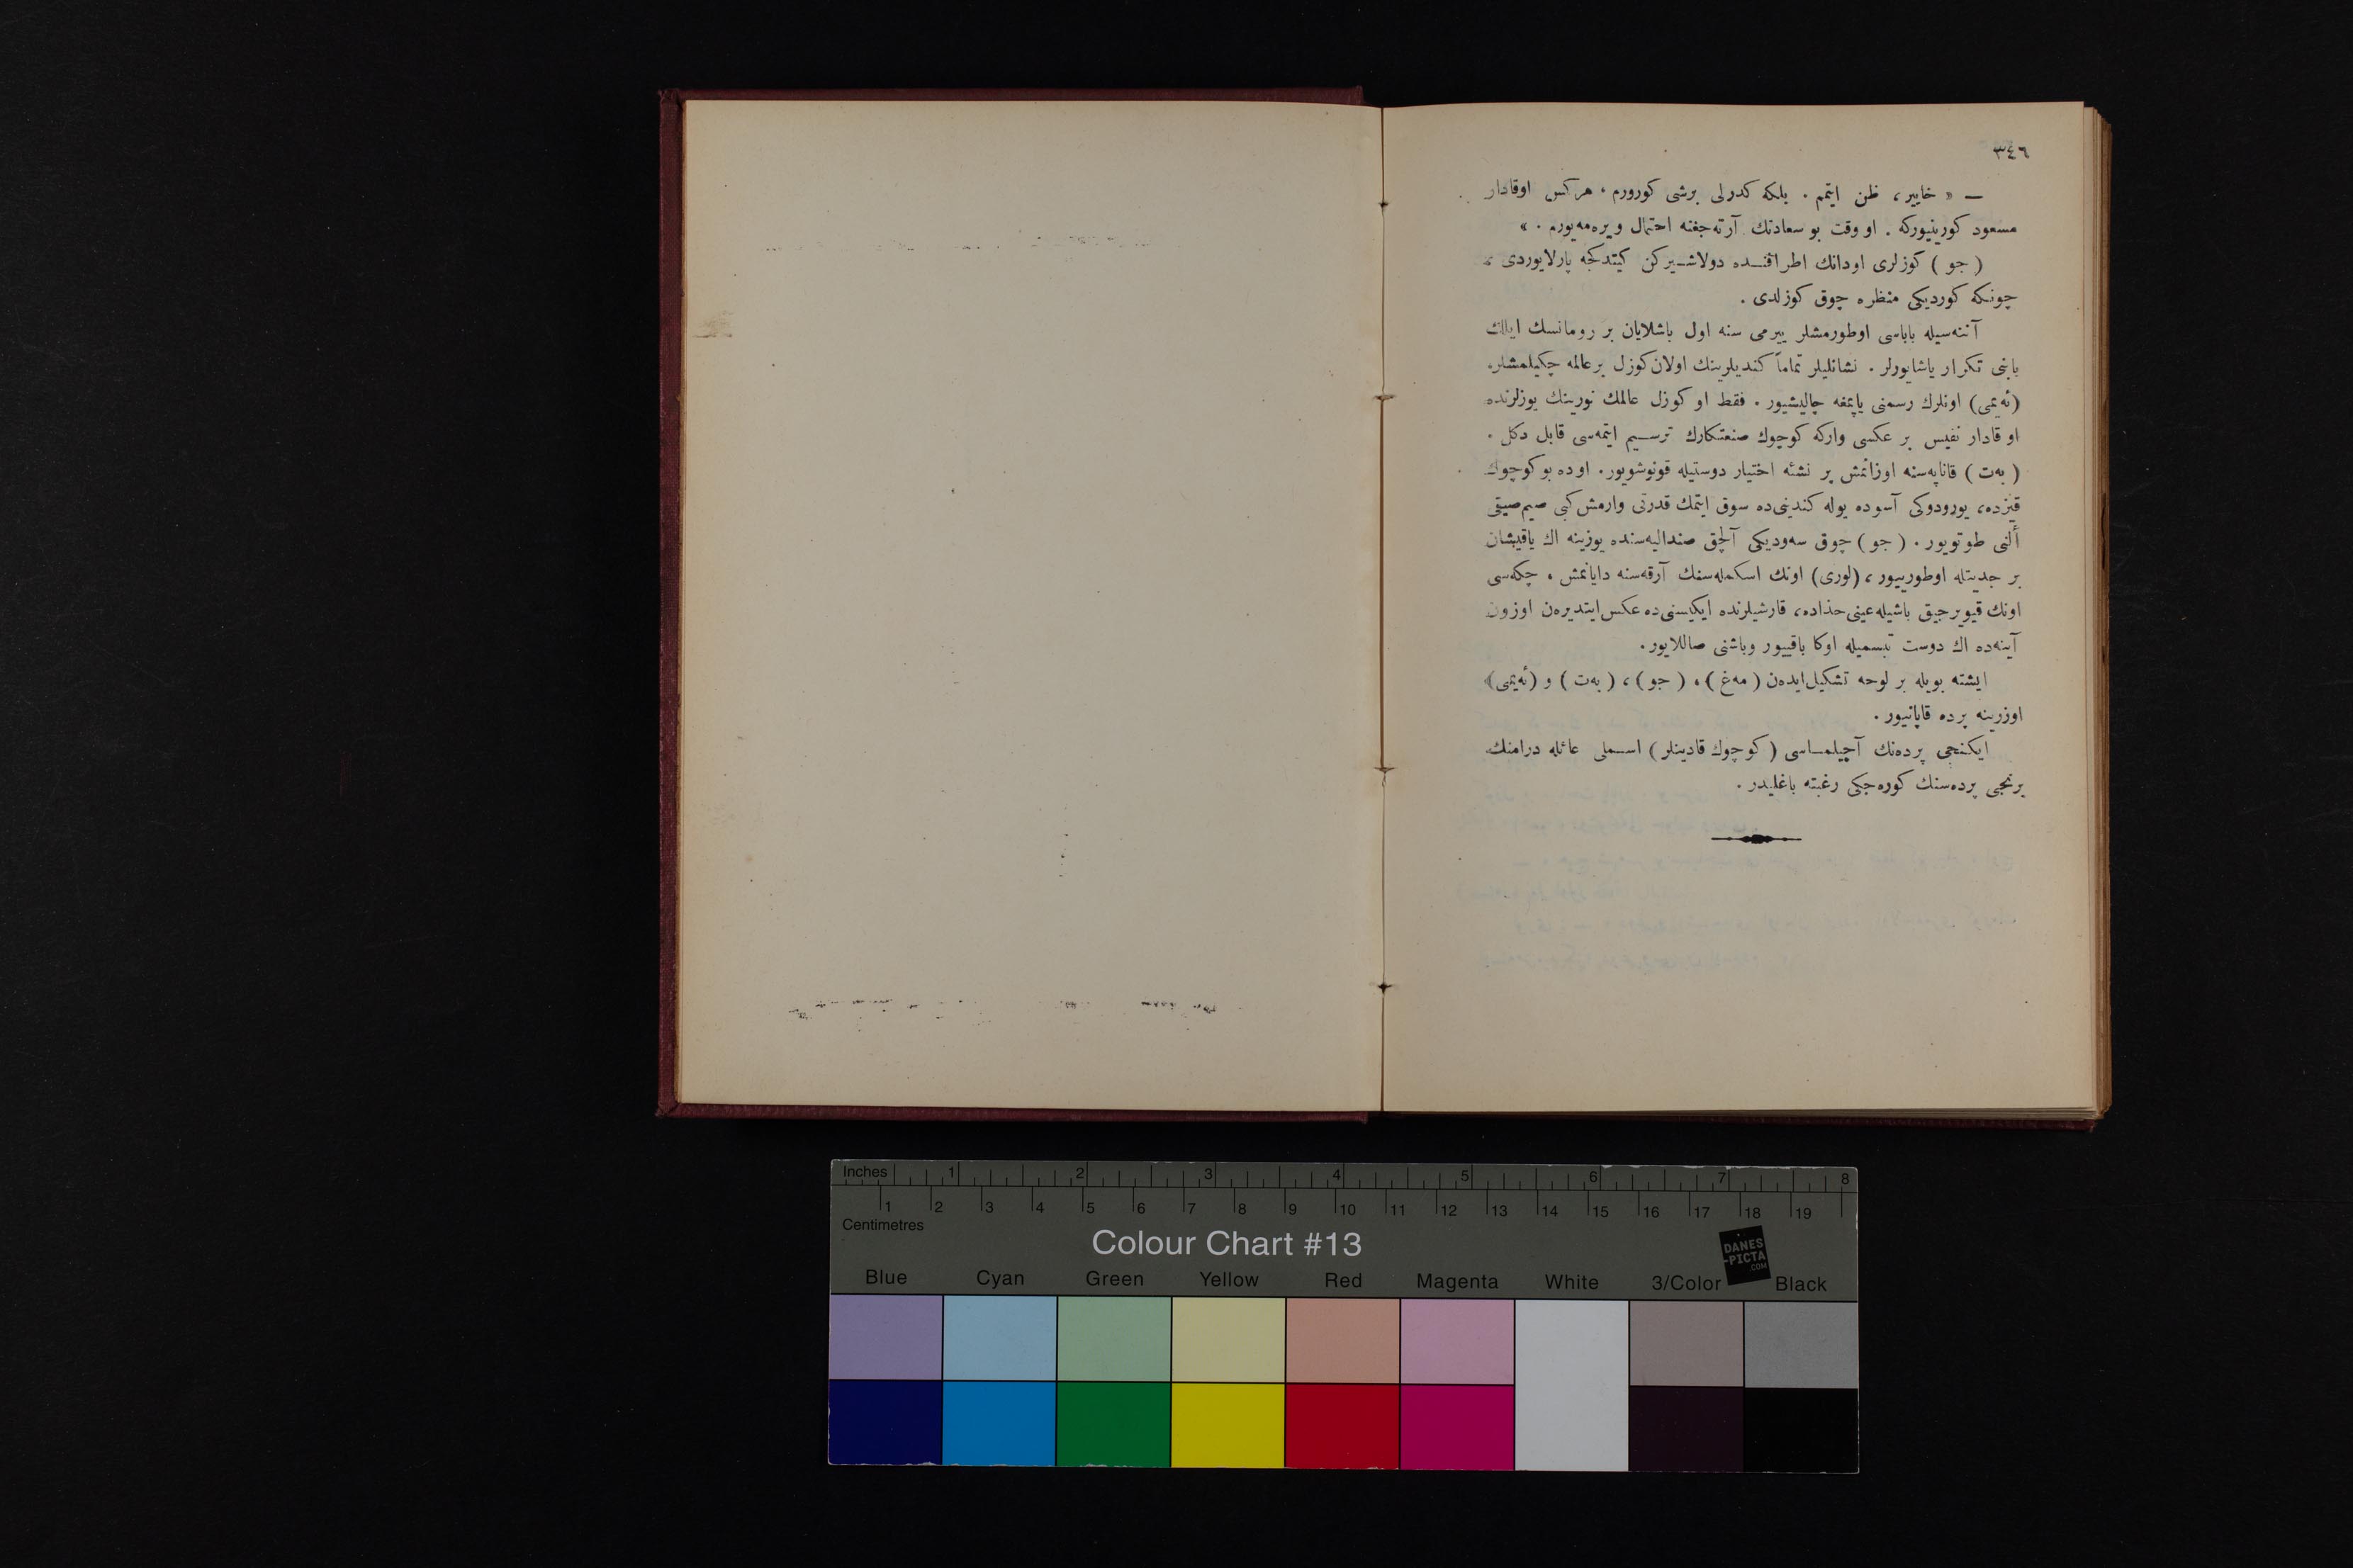 ٣٤٦
— « خايير، ظن ايتمم . بلكه كدرلى برشى كورورم ، هركس اوقادار
مسعود كورينيوركه . او وقت بو سعادتك آرته‌جغنه احتمال ويره‌مه‌يورم . »
( جو ) كوزلرى اودانك اطرافنده دولاشيركن كيتدكجه پارلايوردى ،
چونكه كورديكى منظره چوق كوزلدى .
آننه‌سيله باباسى اوطورمشلر ييرمى سنه اول باشلايان بر رومانسك ايلك
بابنى تكرار ياشايورلر . نشانليلر تماماً كنديلرينك اولان كوزل برعالمه چكيلمشلر.
(ئه‌يمى) اونلرك رسمنى ياپمغه چاليشيور . فقط او كوزل عالمك نورينك يوزلرنده
او قادار نفيس بر عكسى واركه كوچوك صنعتكارك ترسيم ايتمه‌سى قابل دكل .
( به‌ت ) قاناپه‌سنه اوزانمش پر نشئه اختيار دوستيله قونوشويور. اوده بو كوچوك
قيزده، يورودوكى آسوده يوله كندينى‌ده سوق ايتمك قدرتى وارمش كبى صيم‌صيقى
ألنى طوتويور . ( جو ) چوق سه‌وديكى آلچق صنداليه‌سنده يوزينه اك ياقيشان
بر جديتله اوطورييور ، (لورى) اونك اسكمله‌سنك آرقه‌سنه دايانمش ، چكه‌سى
اونك قيويرجيق باشيله عينى حذاده، قارشيلرنده ايكيسنى‌ده عكس ايتديره‌ن اوزون
آينه‌ده اك دوست تبسميله اوكا باقييور وباشنى صاللايور.
ايشته بويله بر لوحه تشكيل ايده‌ن ( مه‌غ ) ، ( جو ) ، ( به‌ت ) و (ئه‌يمى)
اوزرينه پرده قاپانيور .
ايكنجى پرده‌نك آچيلماسى ( كوچوك قادينلر ) اسملى عائله درامنك
برنجى پرده‌سنك كوره‌جكى رغبته باغليدر .
Inches 1 2 3 4 5 6 7 8
1 2 3 4 5 6 7 8 9 10 11 12 13 14 15 16 17 18 19
Centimetres
Colour Chart #13
DANES
-PICTA
.COM
Blue Cyan Green Yellow Red Magenta White 3/Color Black